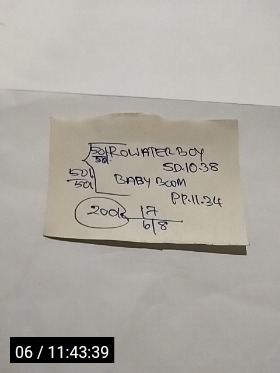 50/ ROWATER BOY
50.
SD.10.38
50/ BABY BOOM
50
PP.11.34
200k 17
6/8
06 / 11:43:39